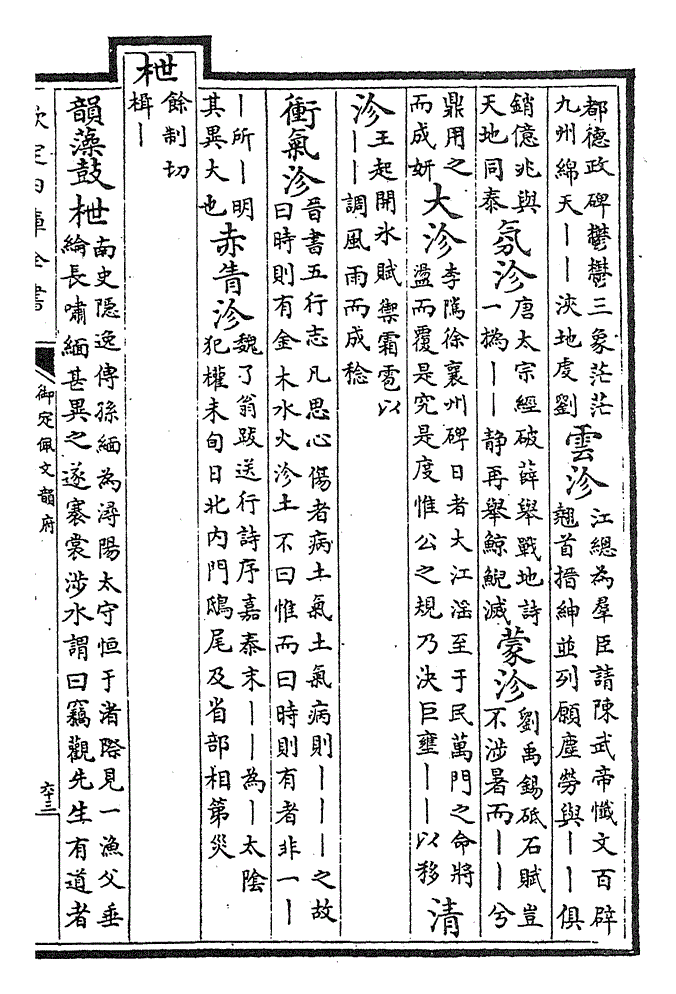 都德政碑鬱鬱三象茫茫
九州綿天丨丨浹地虔劉
雲沴
江總為羣臣請陳武帝懺文百辟
翹首搢紳並列願塵勞與丨丨俱
銷億兆與
天地同泰
氛沴
唐太宗經破薛舉戰地詩
一撝丨丨静再舉鯨鯢滅
蒙沴
劉禹錫砥石賦豈
不涉暑而丨丨兮
鼎用之
而成妍
大沴
李隲徐襄州碑日者大江滛至于民萬門之命將
溢而覆是究是度惟公之規乃決巨壅丨丨以移
清
沴
王起開氷賦禦霜雹以
丨丨調風雨而成稔
衝氣沴
晉書五行志凡思心傷者病土氣土氣病則丨丨丨之故
曰時則有金木水火沴土不曰惟而曰時則有者非一丨
丨所丨明
其異大也
赤眚沴
魏了翁跋送行詩序嘉泰末丨丨為丨太陰
犯權未旬日北内門鴟尾及省部相第災
枻
餘制切
楫丨
韻藻鼓枻
南史隠逸傳孫緬為潯陽太守恒于渚際見一漁父垂
綸長嘯緬甚異之遂褰裳涉水謂曰竊觀先生有道者
欽定四庫全書
御定佩文韻府
六十三